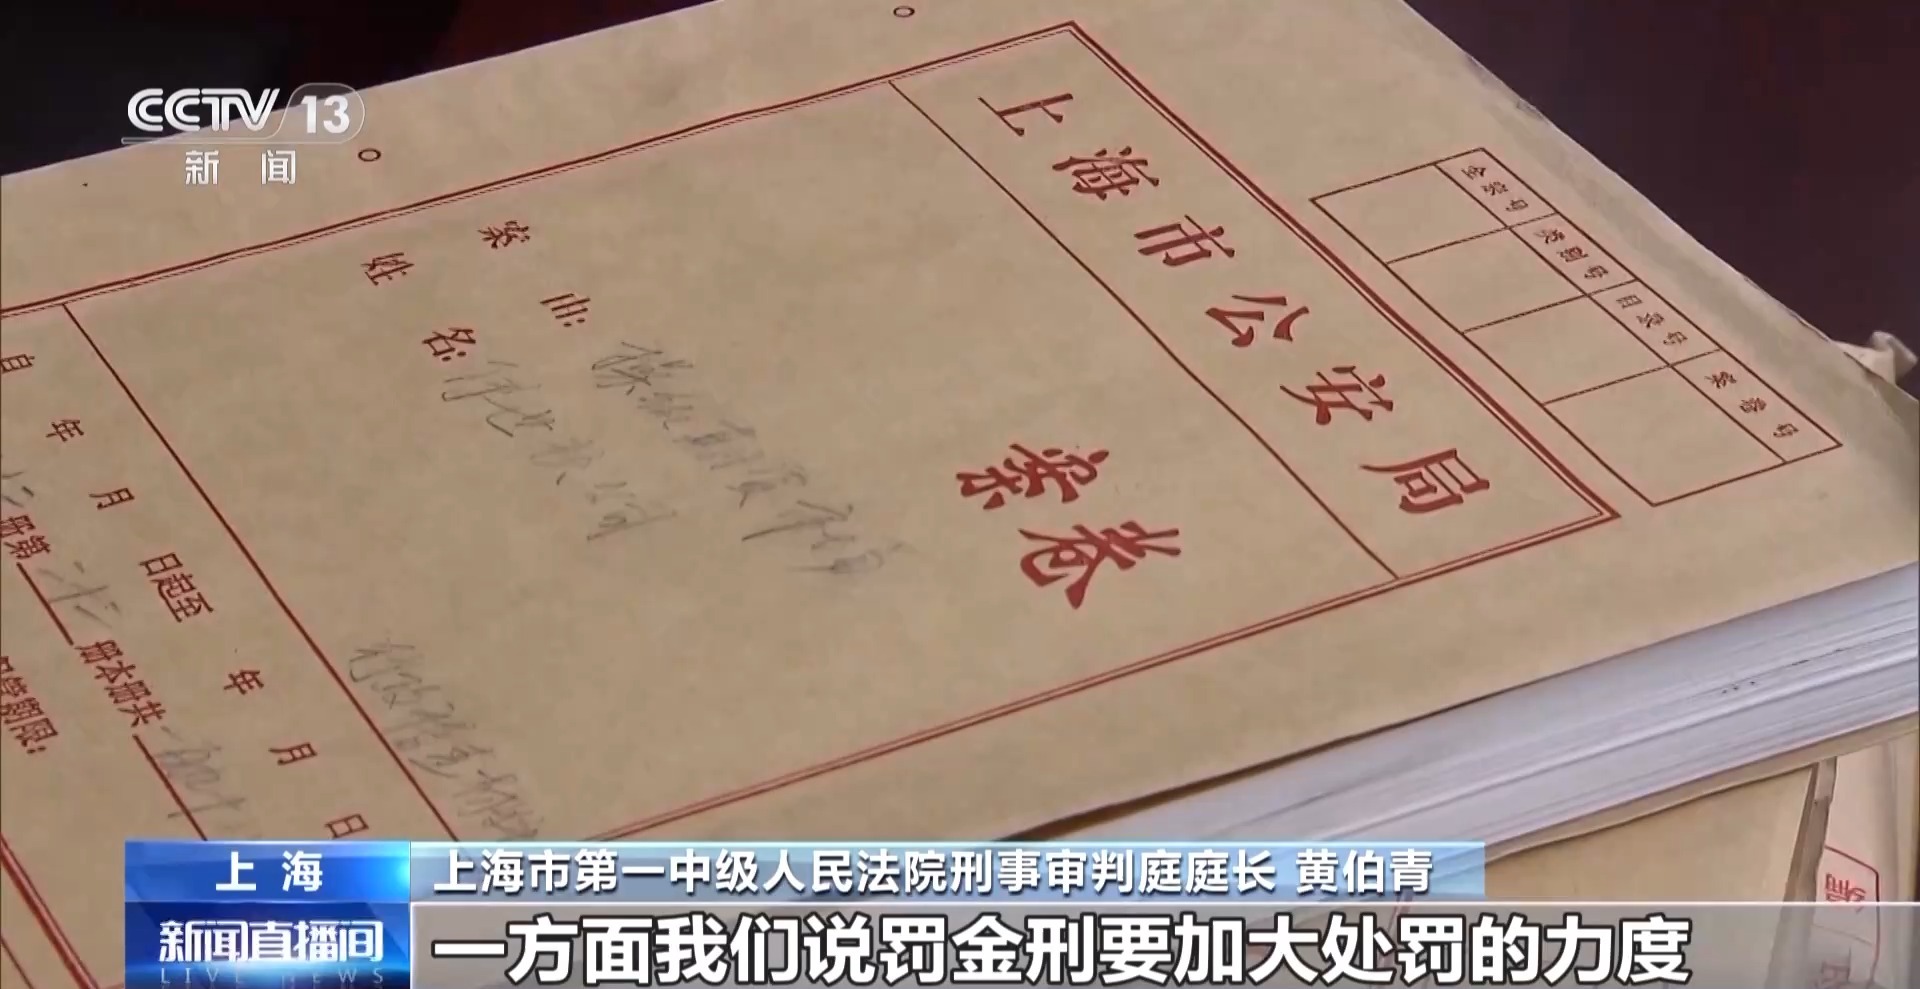 CCTV 13
新闻
全宗号
类别号
目录号
案卷号
上海市公安局
案卷
案由:
姓名:
公司
自 年 月 日起至 年 月 日
本册共
保管期限:
上海
上海市第一中级人民法院刑事审判庭庭长 黄伯青
新闻直播间
LIVE NEWS
一方面我们说罚金刑要加大处罚的力度